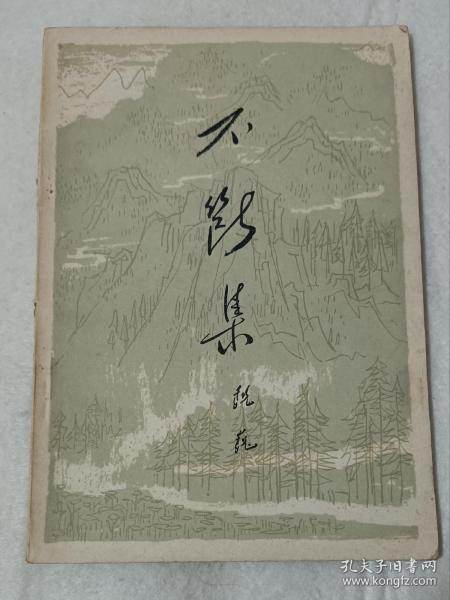 不断集
魏巍
孔夫子旧书网
www.kongfz.com